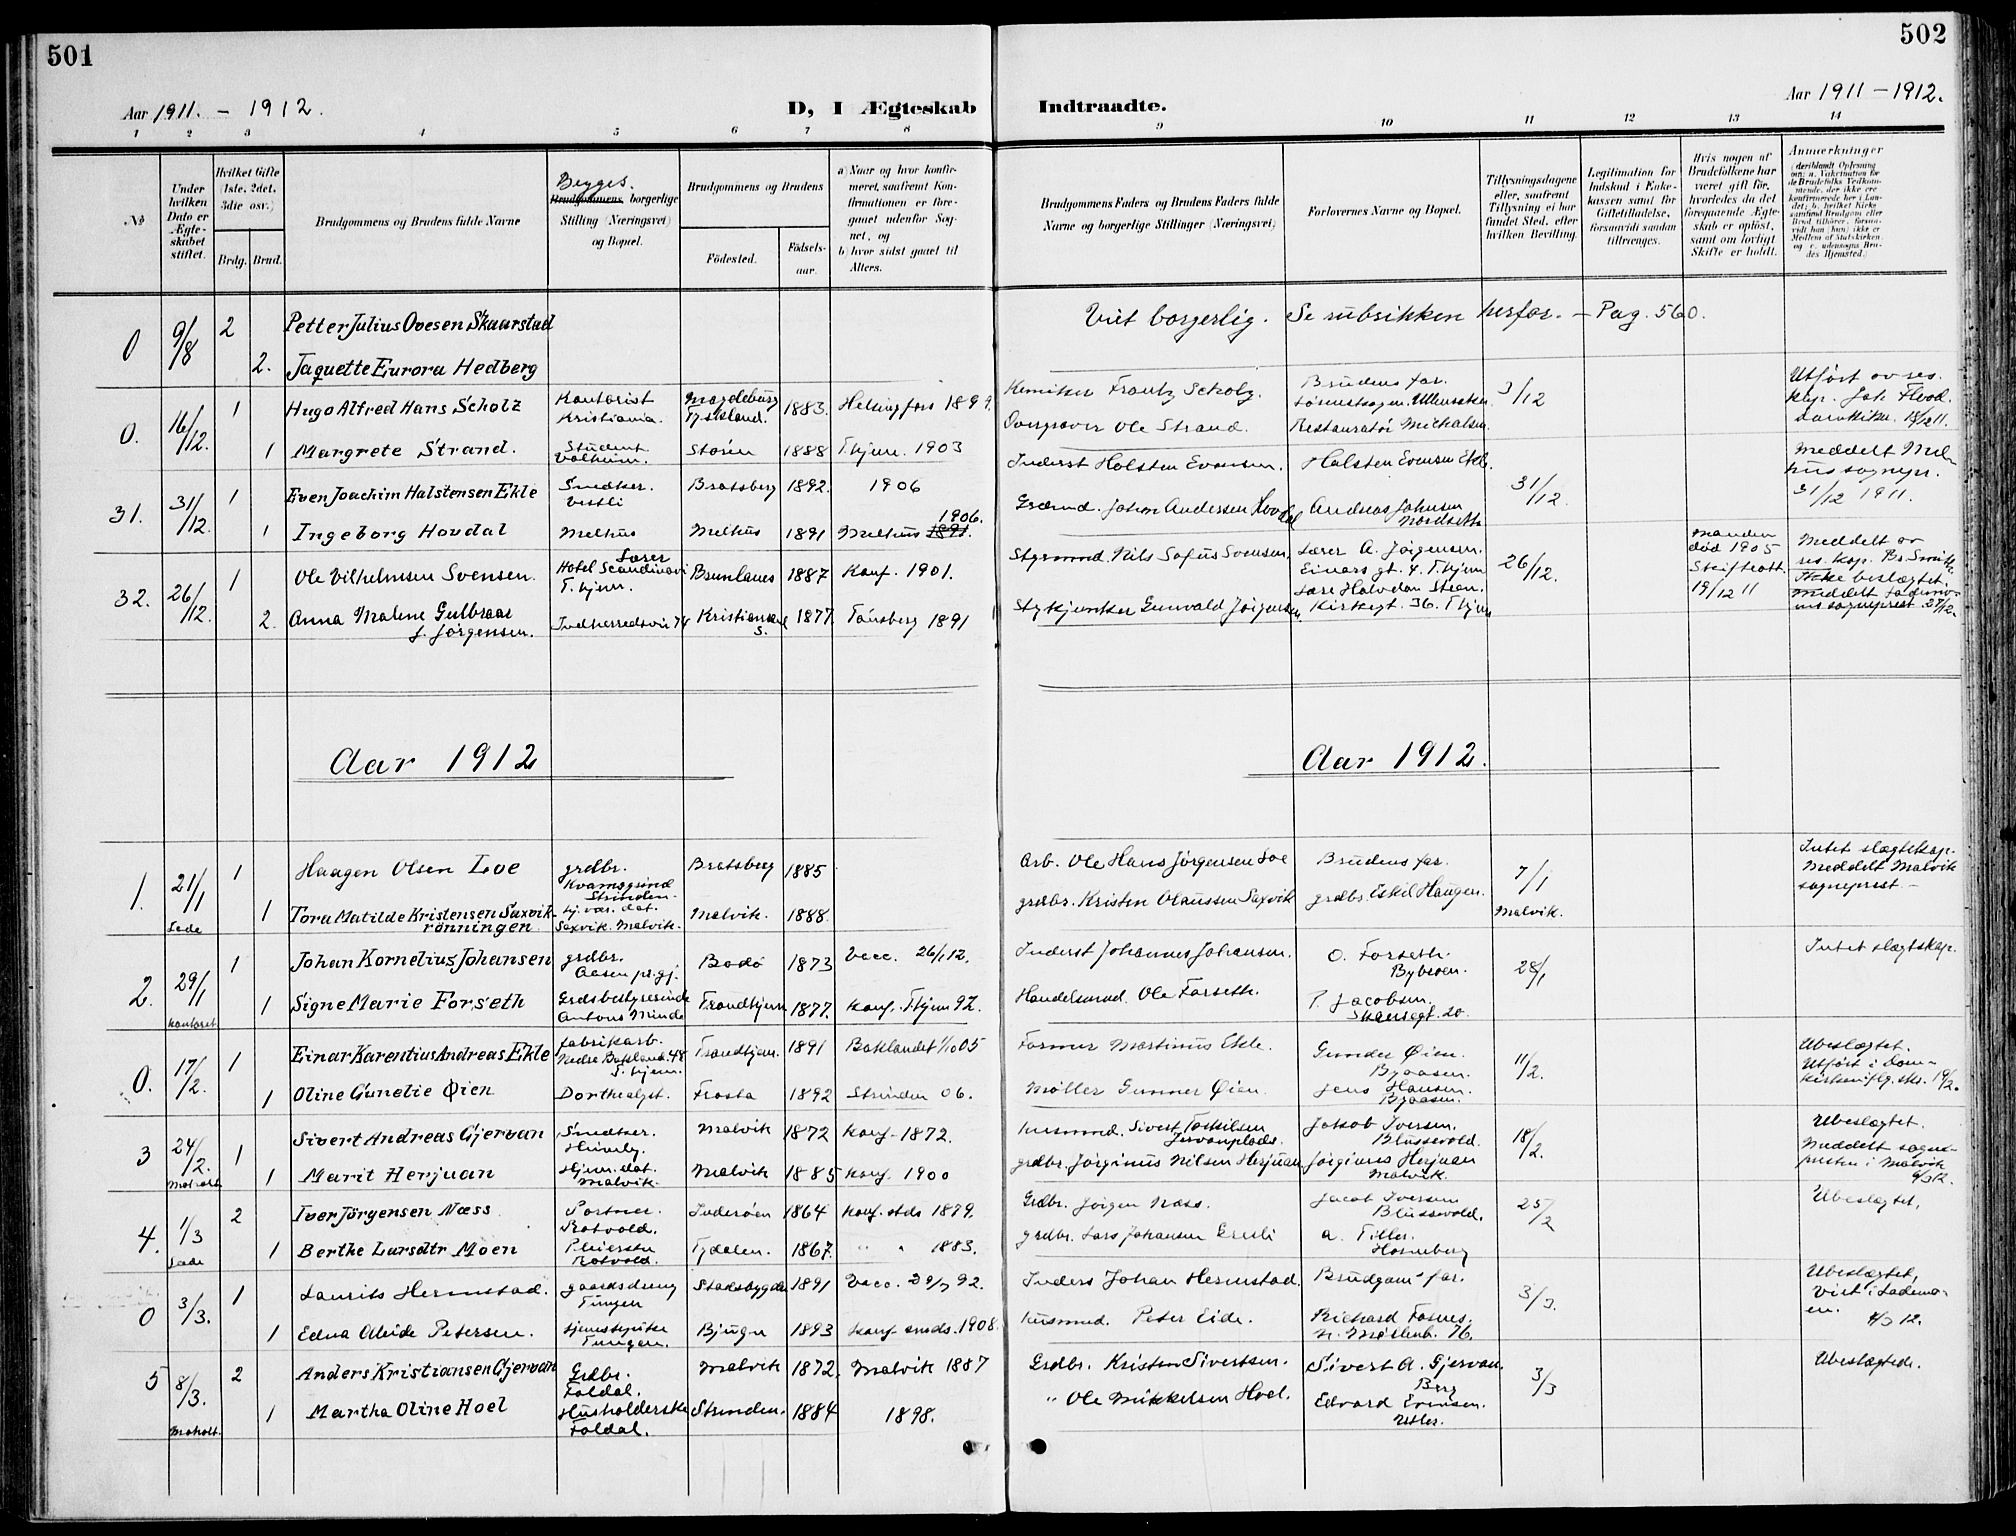 501
502
Aar 1911. - 1912.
D, I Ægteskab
Indtraadte.
Aar 1911 - 1912.
1 2 3 4 5 6 7 8 9 10 11 12 13 14
No.
Under hvilken Dato er Ægteskabet stiftet.
Hvilket Gifte (1ste, 2det, 3die osv.)
Brdg. Brud.
Brudgommens og Brudens fulde Navne
Begges
Brudgommens borgerlige Stilling (Næringsvei) og Bopæl.
Brudgommens og Brudens
Födested.
Födsels-aar.
a) Naar og hvor konfirmeret, saafremt Konfirmationen er foregaaet udenfor Sognet, og
b) hvor sidst gaaet til Alters.
Brudgommens Faders og Brudens Faders fulde Navne og borgerlige Stillinger (Næringsvei)
Forlovernes Navne og Bopæl.
Tillysningsdagene eller, saafremt Tillysning ei har fundet Sted, efter hvilken Bevilling.
Legitimation for Indskud i Enkekassen samt for Giftetilladelse, forsaavidt saadan tiltrænges.
Hvis nogen af Brudefolkene har været gift før, hvorledes da det foregaaende Ægteskab er opløst, samt om lovligt Skifte er holdt.
Anmærkninger
0 9/8 2 Petter Julius Ovesen Skaarstad
Viet borgerlig. Se rubrikken herfor. - Pag. 560.
2. Jaquette Eurora Hedberg
0. 16/12. 1 Hugo Alfred Hans Scholz Kontorist Kristiania. Magdeburg Tyskland. 1883. Helsingfors 1899. Kemiker Frantz Scholz. Brudens far. 3/12
1 Margrete Strand. Student Volheim. Støren 1888 Thjem. 1903 Overgraver Ole Strand. Restauratør Michalsen.
31. 31/12. 1 Even Joachim Halstensen Ekle Snedker. Vestli Bratsberg 1892. 1906 Inderst Holsten Evensen. Halsten Evensen Ekle. 31/12. Meddelt Melhus sognepr. 31/12 1911.
1 Ingeborg Hovdal Melhus Melhus 1891 Melhus 1891. 1906. Grdmd. Johan Andersen Hovdal Andreas Johnsen Nordsetth
32. 26/12. 1 Ole Vilhelmsen Svensen. Lærer Hotel Scandinavi T.hjem. Brunlanes 1887 Konf. 1901. Styrmand Nils Sofus Svensen, Lærer A. Jørgensen. Einars gt. 4. T.hjem 26/12. manden død 1905 Skifteatt. 19/12 11
2. Anna Malene Gulbraar f. Jørgensen. Indherredsvei 74 Kristiansand S. 1877. Tønsberg 1891 Stykjunker Gunvald Jørgensen. Lære Halvdan Steen. Kirkegt. 36. T.hjem
Aar 1912
Aar 1912.
1. 21/1 Lade 1 Haagen Olsen Loe grdbr. Kvamsgrind Strinden. Bratsberg 1885 Arb. Ole Hans Jørgensen Loe Brudens far. 7/1 Malvik. Intet slægtskap. Meddelt Malvik sogneprest. -
1 Tora Matilde Kristensen Saxvik-rönningen hj.vær. dat. Saxvik. Malvik. Malvik. 1888. grdbr. Kristen Olaussen Saxvik grdbr. Eskil Haugen.
2. 29/1 kontoret 1 Johan Kornelius Johansen grdbr. Aasen pr. gj. Bodø 1873 Vacc. 26/1 12. Inderst Johannes Johansen. O. Forseth. Bybroen. 28/1 Intet slægtskap.
1 Signe Marie Forseth Grdsbestyrerinde Antons Minde Trondhjem 1877. Konf. Thjem 92. Handelsmd. Ole Forseth. P. Jacobsen. Skansegt. 20.
0. 17/2. 1 Einar Karentius Andreas Ekle fabrikarb. Nedre Bakland. 48 T.hjem. Trondhjem. 1891 Baklandet 1/10 05 Former Martinus Ekle. Gunder Øien. Byaasen. 11/2. Ubeslægtet. Utført i Domkirken
1 Oline Gunelie Øien Dorthealyst. Frosta 1892 Strinden 06. Møller Gunner Øien. Jens Hansen. Byaasen.
3 24/2. Moholt 1 Sivert Andreas Gjervan Snedker. Malvik 1872 Konf. 1872. Husmnd. Sivert Torkilsen Jervanplads. Jakob Iversen. Blussevold. 18/2. Ubeslægtet. Meddelt sognepresten i Malvik
1 Marit Herjuan Hjem. dat. Malvik. Malvik 1885 Konf. 1900 grdbr. Jørginus Nilsen Herjuan Jørginus Herjuan Malvik.
4. 1/3 Lade 2 Iver Jörgensen Næss Portner. Rotvold. Inderøen 1864 Konf. stds 1879. Grdbr. Jørgen Næss. Jacob Iversen Blussevold. 25/2 Ubeslægtet.
1 Berthe Larsdtr Moen Pleierske Rotvold. Tydalen. 1867. " " 1883. grdbr. Lars Johansen a. Tiller.
0 3/3. 1 Laurits Hermstad. gaardsdreng Tungen Stadsbygden 1891 Vacc. 92. Inders Johan Hermstad. Brudgoms far. 3/3. Ubeslægtet, Viet i Lademoen. 4/3 12.
1 Edna Alvide Petersen. tjenestepike Tungen. Bjugn 1893 Konf. 1908. Husmnd. Peter Eide. Richard Fosnes. N. Møllenb. 76.
5 8/3. Moholt. 2 Anders Kristiansen Gjervan Grdbr. Foldal. Malvik 1872. Malvik 1887 Grdbr. Kristen Sivertsen. Sivert A. Gjervan. Berg 3/3 Ubeslægtede.
1 Martha Oline Hoel Husholderske Foldal. Strinden. 1884 1898. " Ole Mikkelsen Hoel. Edvard Evensen.